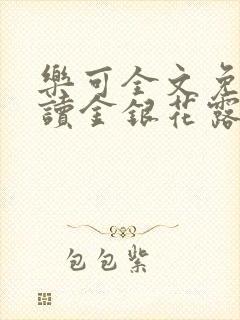 樂可全文免
讀金銀花露
包包紫